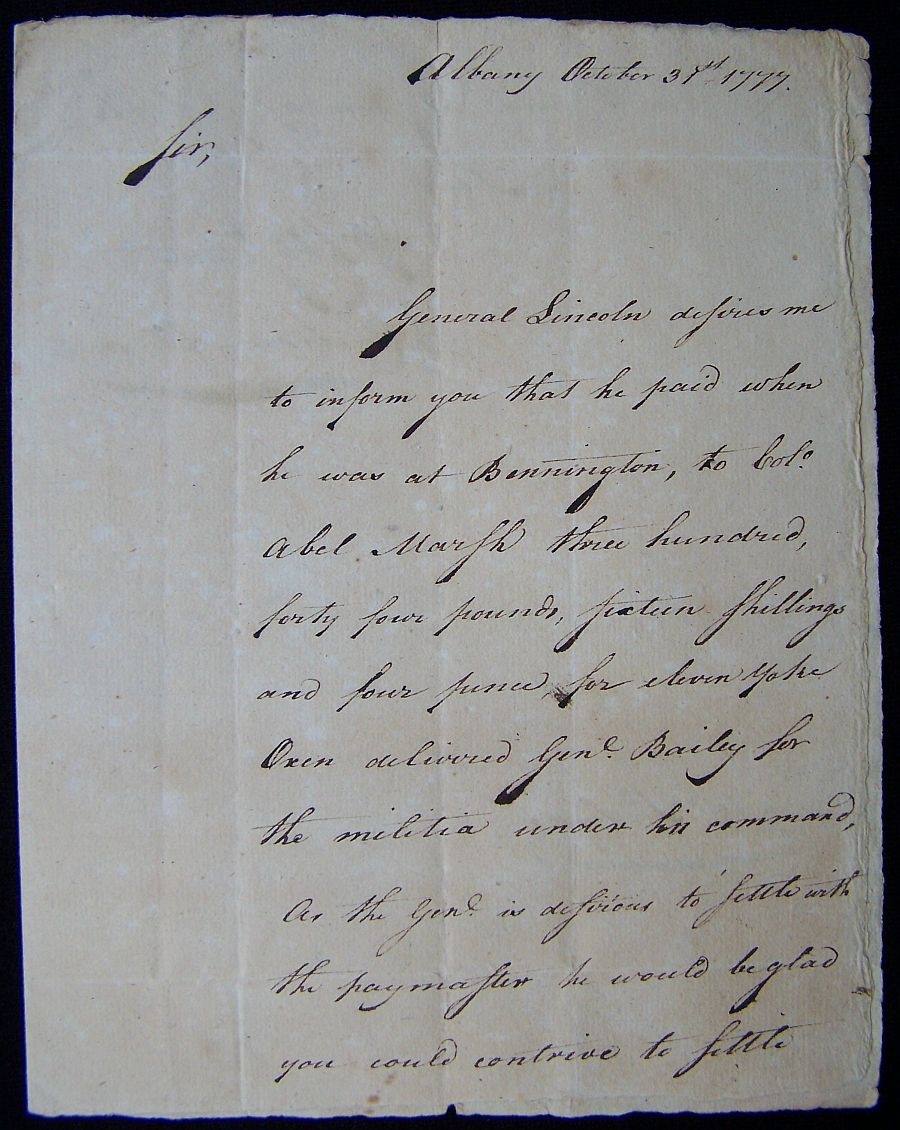 Albany October 31st 1777.
Sir,
General Lincoln desires me
to inform you that he paid when
he was at Bennington, to Colo.
Abel Marsh three hundred,
forty four pounds, sixteen shillings
and four pence, for eleven Yoke
Oxen delivered Genl. Bailey for
the militia under his command,
As the Genl. is desirious to settle with
the paymaster he would be glad
you could contrive to settle